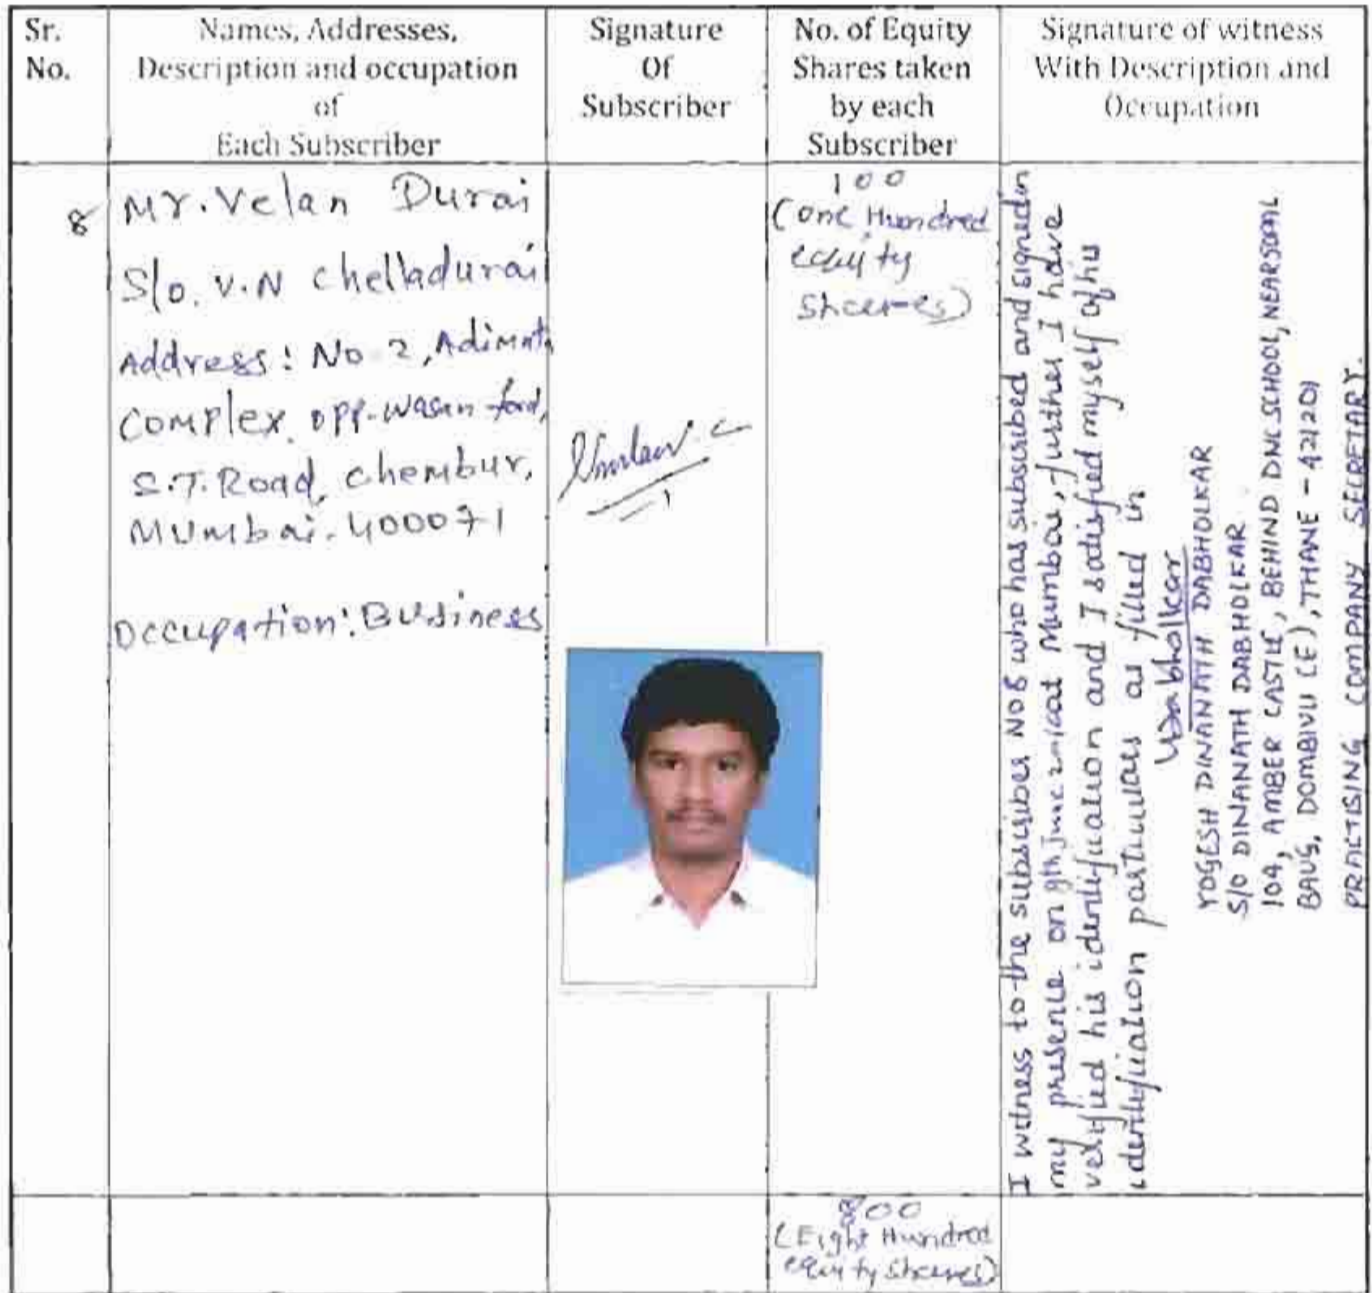 Sr.
No.
Names, Addresses,
Description and occupation
of
Each Subscriber
Signature
Of
Subscriber
No. of Equity
Shares taken
by each
Subscriber
Signature of witness
With Description and
Occupation
8
Mr. Velan Durai
S/o. V.N Chelladurai
Address: No 2, Adimata
Complex. opp-wasan ford,
S.T. Road, Chembur,
Mumbai-400071
Occupation: Business
100
(One Hundred
equity
Shares)
I witness to the subscriber NO 8 who has subscribed and signed in
my presence on 9th June at Mumbai, further I have
verified his identification and I satisfied myself of his
identification particulars as filled in
Dabholkar
YOGESH DINANATH DABHOLKAR
S/O DINANATH DABHOLKAR
104, AMBER CASTLE, BEHIND DNC SCHOOL, NEAR
BAUG, DOMBIVLI (E), THANE - 421201
PRACTISING COMPANY SECRETARY.
800
(Eight Hundred
equity Shares)